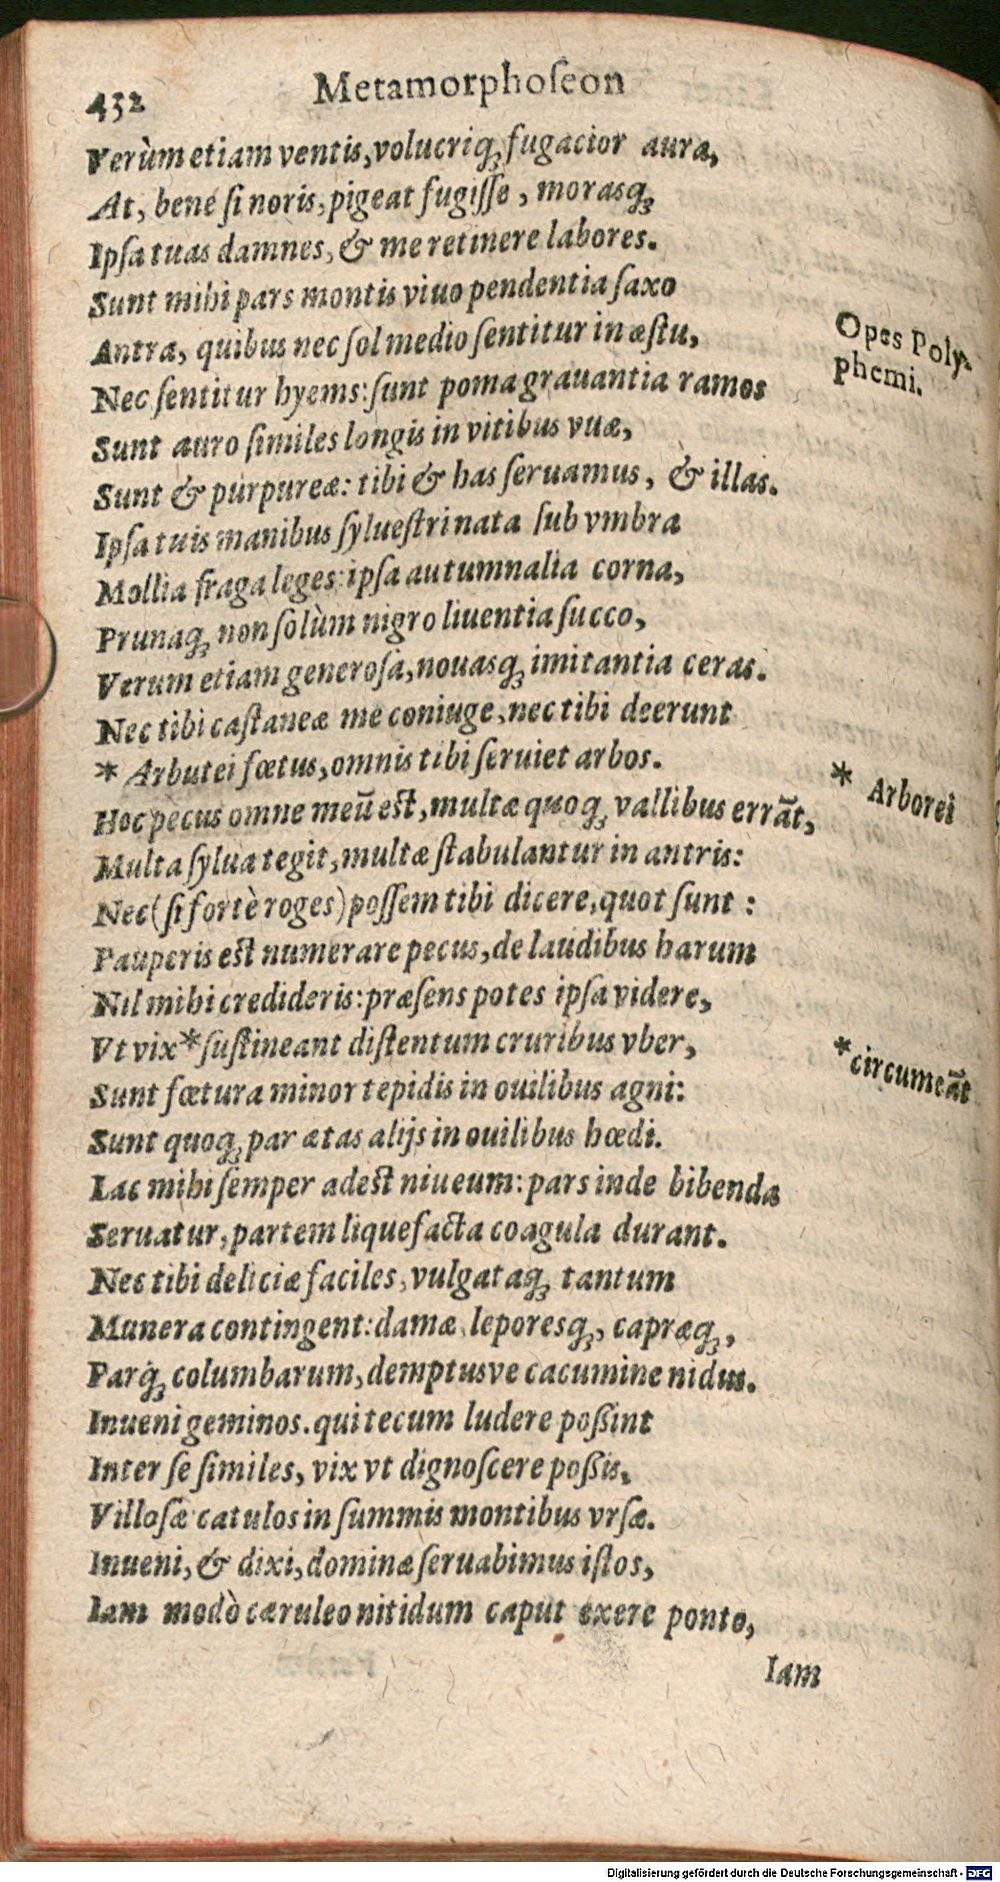 432 Metamorphoſeon
Verùm etiam ventis, volucriq́; fugacior aura,
At, bene ſi noris, pigeat fugiſſe, moraśq;
Ipſa tuas damnes, & me retinere labores.
Sunt mihi pars montis viuo pendentia ſaxo
Antra, quibus nec ſol medio ſentitur in æſtu,
Opes Poly-
Nec ſentitur hyems: ſunt poma grauantia ramos
phemi.
Sunt auro ſimiles longis in vitibus vuæ,
Sunt & purpureæ: tibi & has ſeruamus, & illas.
Ipſa tuis manibus ſylueſtri nata ſub vmbra
Mollia fraga leges: ipſa autumnalia corna,
Prunaq́; non ſolùm nigro liuentia ſucco,
Verum etiam generoſa, nouasq́; imitantia ceras.
Nec tibi caſtaneæ me coniuge, nec tibi deerunt
* Arbutei fœtus, omnis tibi ſeruiet arbos.
* Arborei
Hoc pecus omne meũ eſt, multæ quoq; vallibus errãt,
Multa ſylua tegit, multæ ſtabulantur in antris:
Nec (ſi fortè roges) poſſem tibi dicere, quot ſunt:
Pauperis eſt numerare pecus, de laudibus harum
Nil mihi credideris: præſens potes ipſa videre,
Vt vix * ſuſtineant diſtentum cruribus vber,
* circumeãt
Sunt fœtura minor tepidis in ouilibus agni:
Sunt quoq; par ætas alijs in ouilibus hœdi.
Lac mihi ſemper adeſt niueum: pars inde bibenda
Seruatur, partem liquefacta coagula durant.
Nec tibi deliciæ faciles, vulgataq́; tantum
Munera contingent: damæ, leporesq́;, capræq́;,
Parq́; columbarum, demptusve cacumine nidus.
Inueni geminos. qui tecum ludere poßint
Inter ſe ſimiles, vix vt dignoſcere poßis,
Villoſæ catulos in ſummis montibus vrſæ.
Inueni, & dixi, dominæ ſeruabimus iſtos,
Iam modò cæruleo nitidum caput exere ponto,
Iam
Digitalisierung gefördert durch die Deutsche Forschungsgemeinschaft - DFG